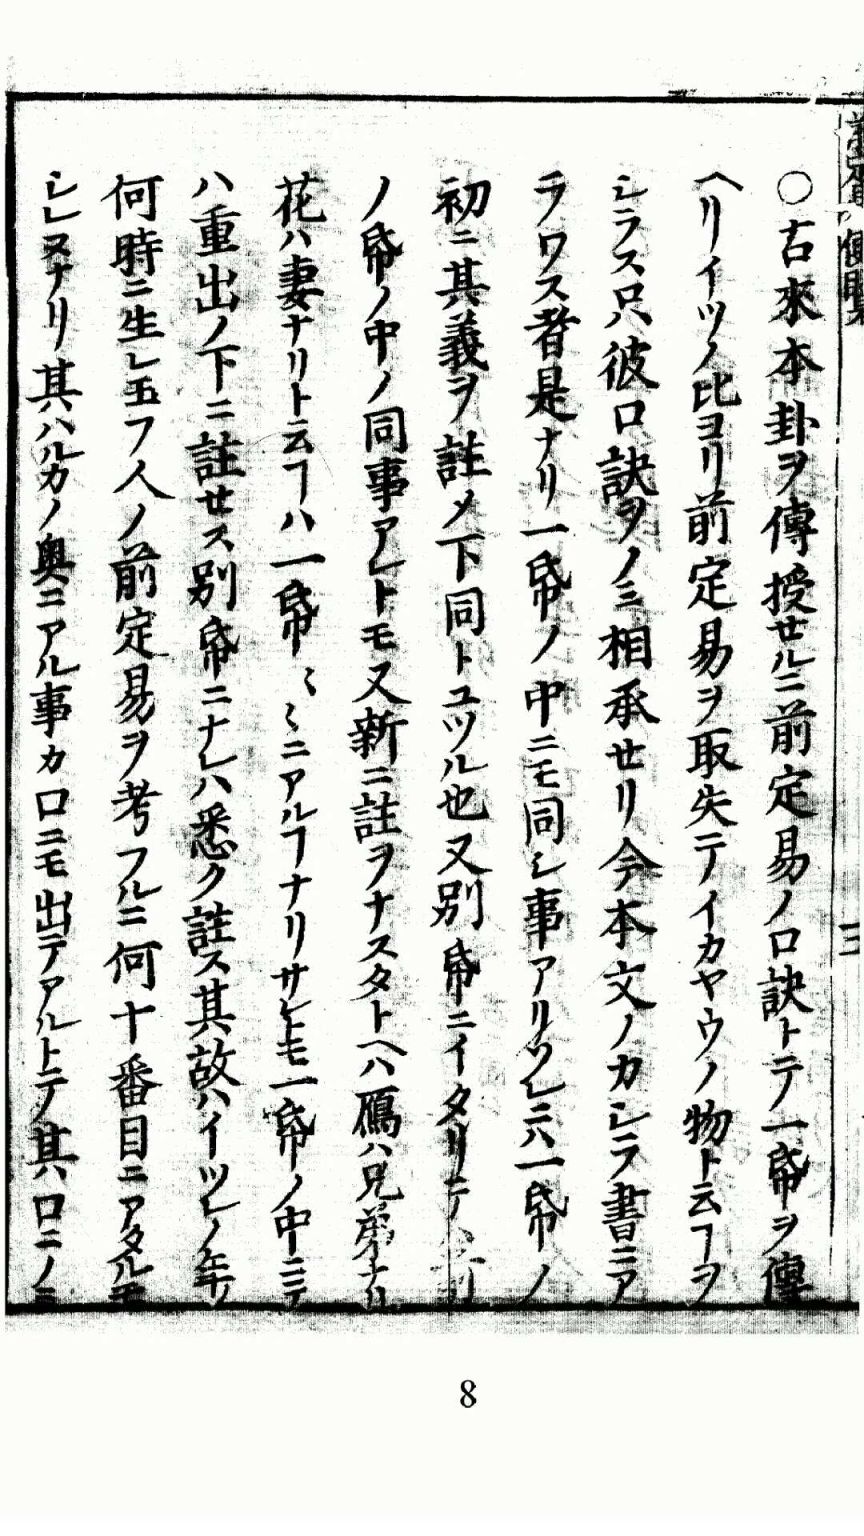 ○古來本卦ヲ傳授セルニ前定易ノ口訣トテ一帋ヲ傳
ヘリイツノ比ヨリ前定易ヲ取失テイカヤウノ物ト云ヿヲ
シラス只彼口訣ヲノミ相承セリ今本文ノカシラ書ニア
ラワス者是ナリ一帋ノ中ニモ同シ事アリツレニハ一帋ノ
初ニ其義ヲ註メ下同トユツル也又別帋ニイタリテハ
ノ帋ノ中ノ同事アレトモ又新ニ註ヲナスタトヘハ鴈ハ兄弟ナリ
花ハ妻ナリト云ヿハ一帋〻〻ニアルヿナリサレトモ一帋ノ中ニテ
ハ重出ノ下ニ註セス別帋ニナレハ悉ク註ス其故ハイツレノ年ノ
何時ニ生レ玉フ人ノ前定易ヲ考フルニ何十番目ニアタルモ
シレヌナリ其ハルカノ奥ニアル事カ口ニモ出テアルトテ其ハ口ニノミ
三
8